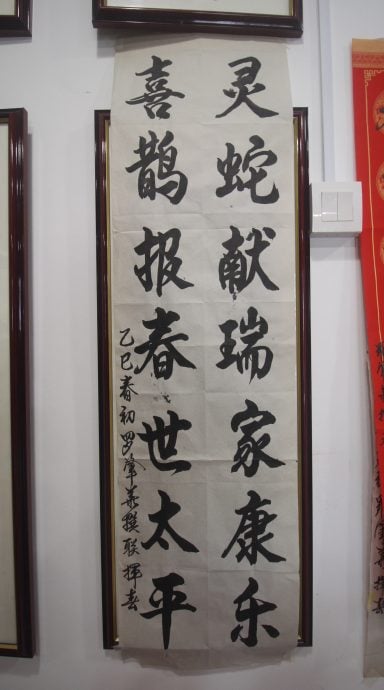 灵蛇献瑞家康乐
喜鹊报春世太平
乙巳春初罗肇华撰联挥春